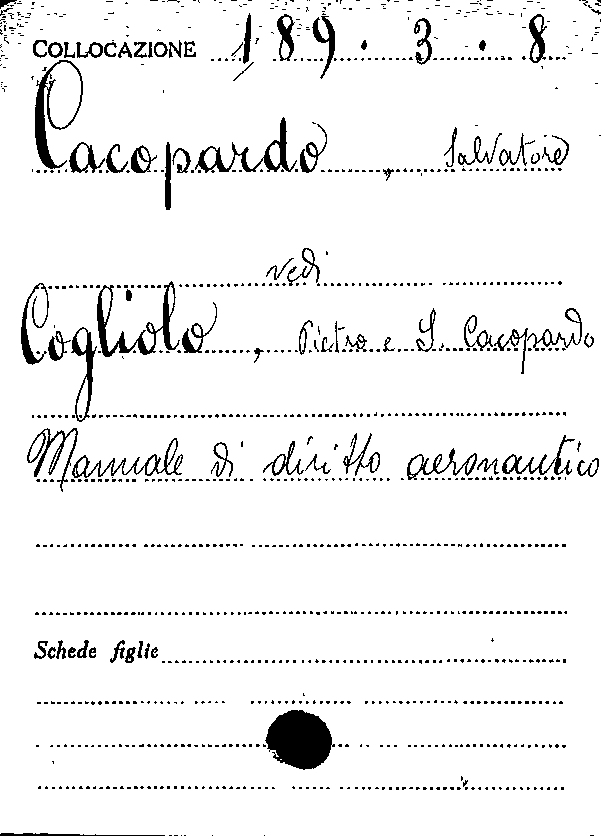 COLLOCAZIONE 189.3.8
Cacopardo, Salvatore
vedi
Cogliolo, Pietro e S. Cacopardo
Manuale di diritto aeronautico
Schede figlie